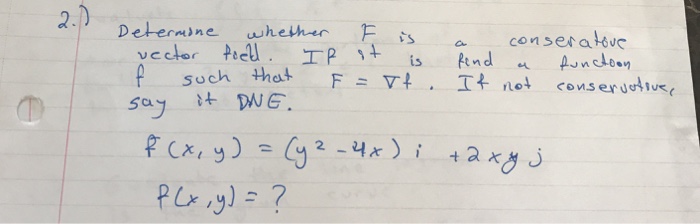 2.)
Determine whether F is a conserative
vector field. If it is find a function
f such that F = ∇f. If not conservative,
say it DNE.
f(x, y) = (y² - 4x) i + 2xy j
f(x, y) = ?